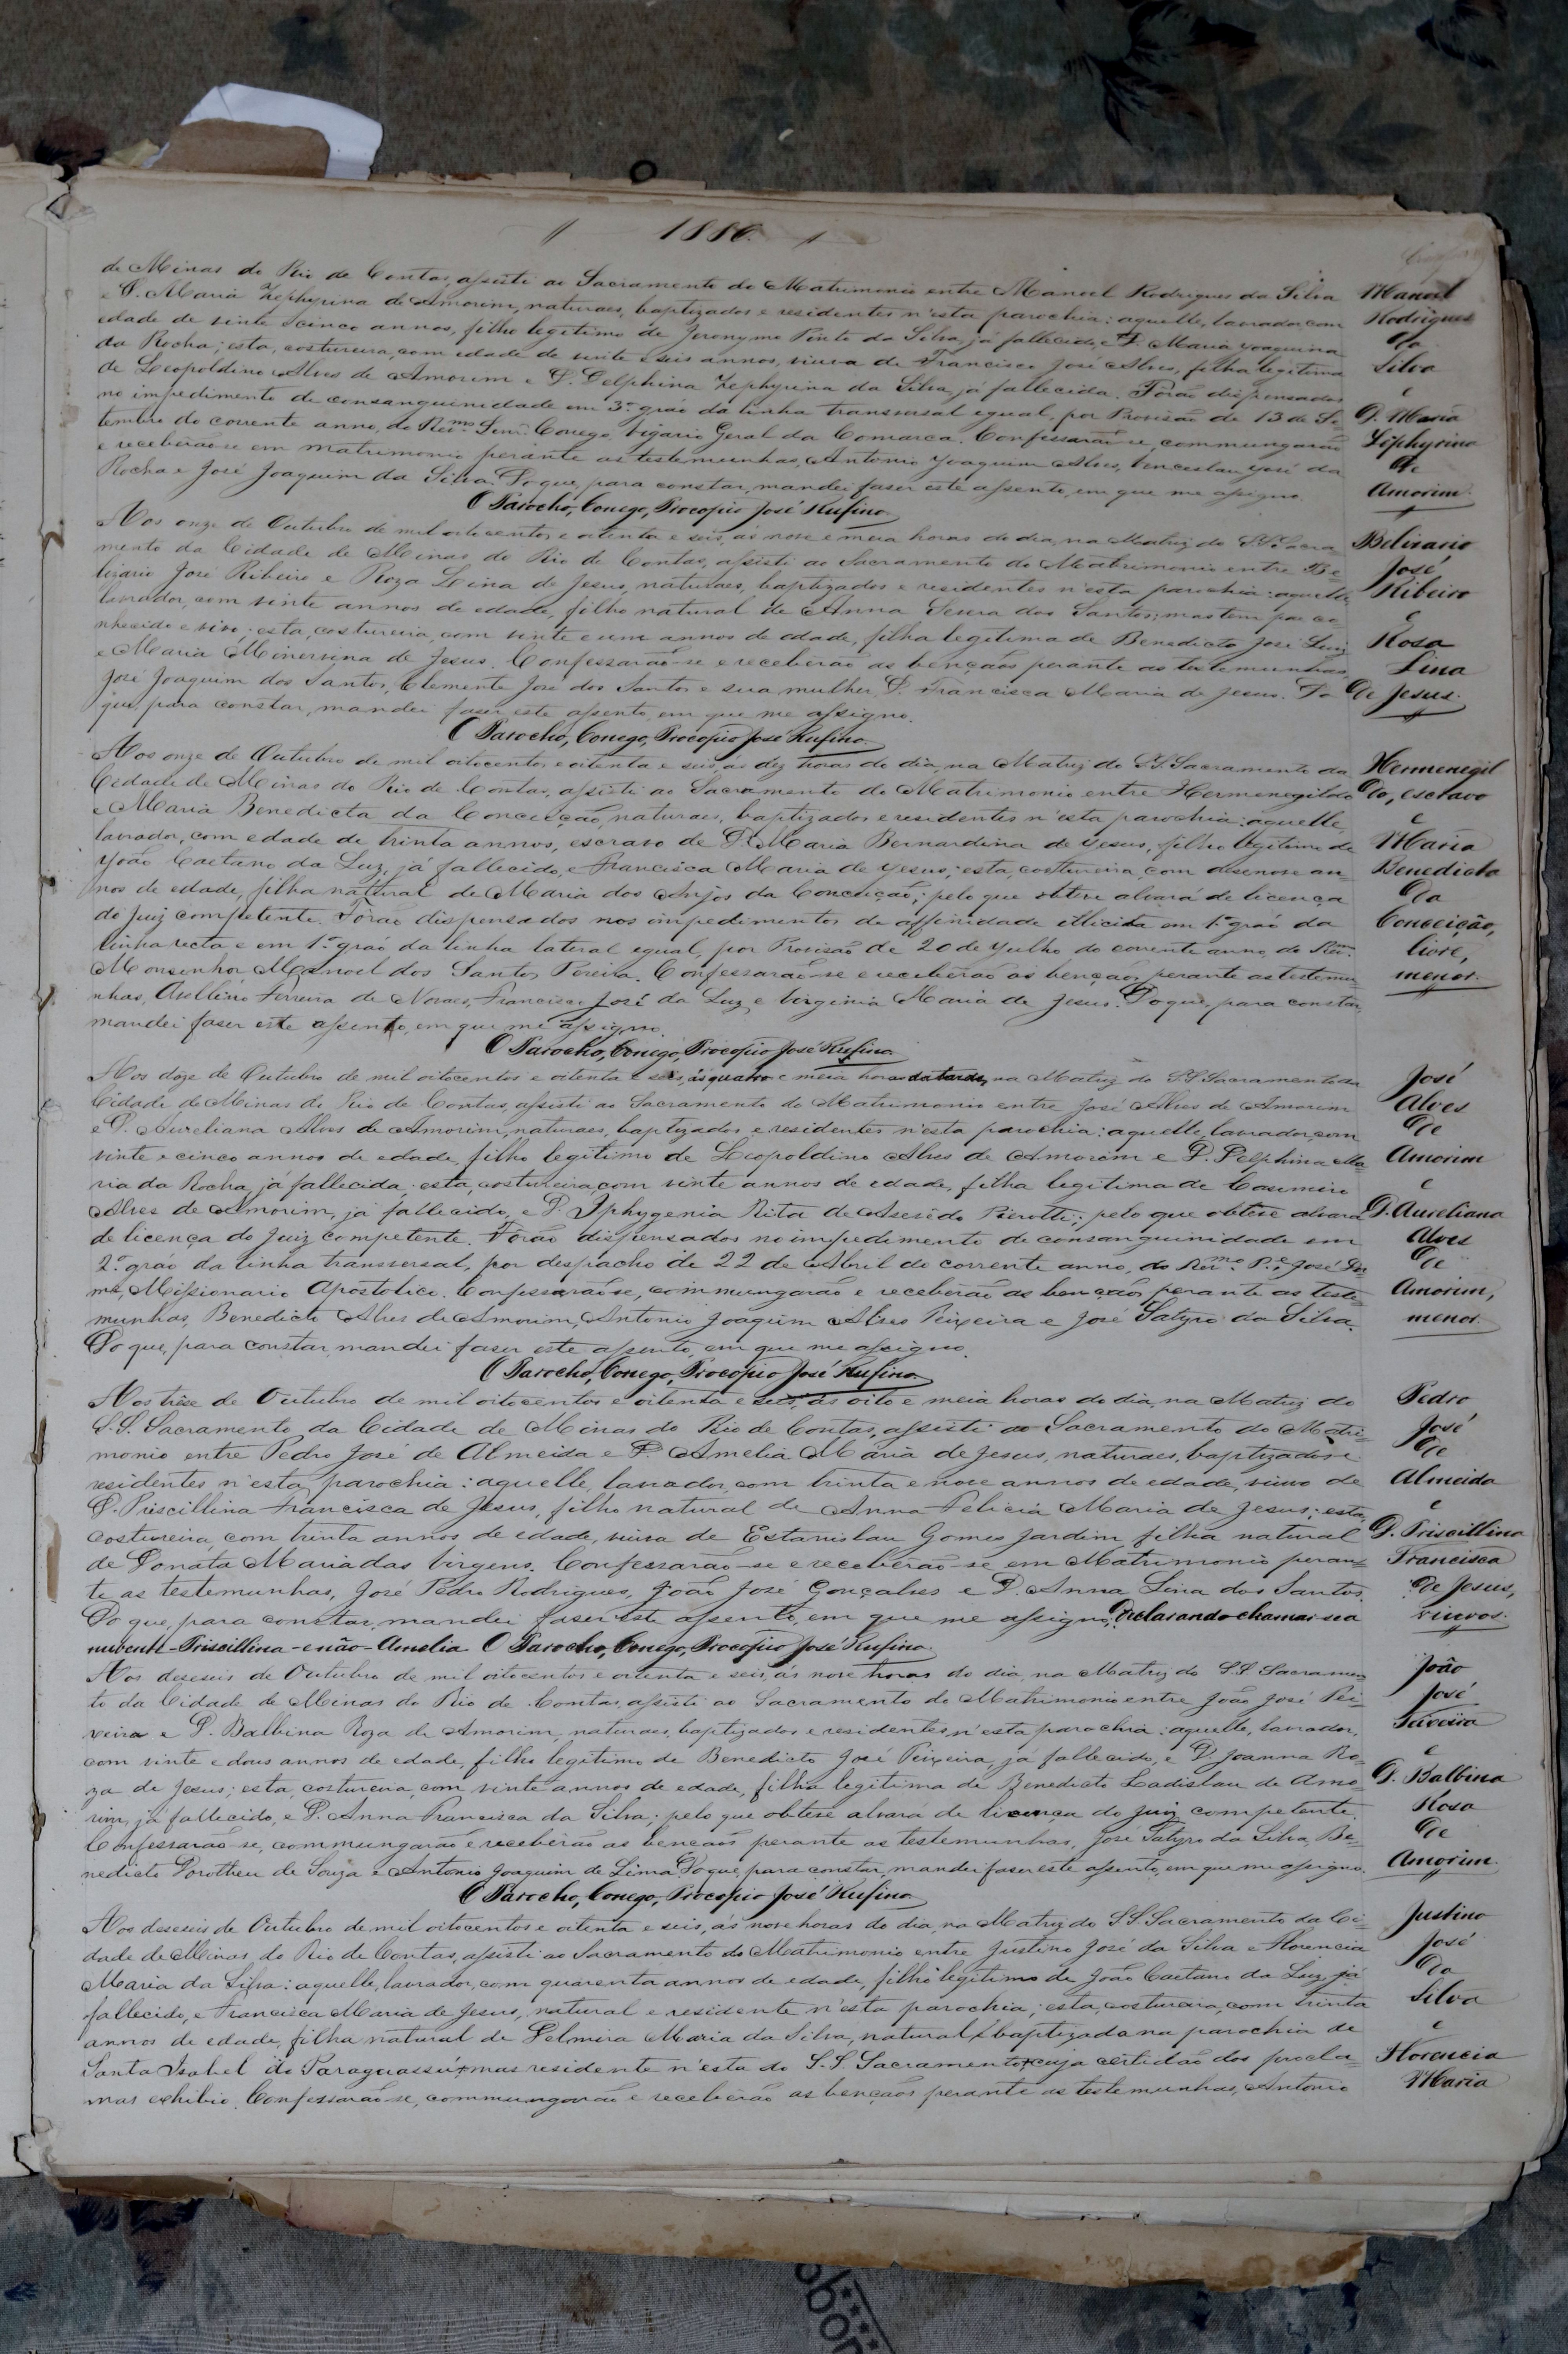 1886.
de Minas do Rio de Contas, assisti ao Sacramento do Matrimonio entre Manoel Rodrigues da Silva
e D. Maria Zephyrina de Amorim, naturaes, baptizados e residentes n'esta parochia: aquelle, lavrador, com
edade de vinte e cinco annos, filho legitimo de Jeronymo Pinto da Silva, já fallecido, e D. Maria Joaquina
da Rocha; esta, costureira, com edade de vinte e seis annos, viuva de Francisco José Alves, filha legitima
de Leopoldino Alves de Amorim e D. Delphina Zephyrina da Silva, já fallecida. Forão dispensados
no impedimento de consanguinidade em 3.º gráo da linha transversal egual, por Provisão de 13 de Se-
tembro do corrente anno, do Revmo. Senr. Conego Vigario Geral da Comarca. Confessarão-se, commungarão
e receberão-se em matrimonio perante as testemunhas, Antonio Joaquim Alves, Venceslau José da
Rocha e José Joaquim da Silva. Do que, para constar, mandei faser este assento, em que me assigno.
O Parocho, Conego, Procopio José Rufino.
Aos onze de Outubro de mil oitocentos e oitenta e seis, ás nove e meia horas do dia, na Matriz do SS. Sacra-
mento da Cidade de Minas do Rio de Contas, assisti ao Sacramento do Matrimonio entre Be-
lizario José Ribeiro e Roza Lina de Jesus, naturaes, baptizados e residentes n'esta parochia: aquelle,
lavrador, com vinte annos de edade, filho natural de Anna Senra dos Santos; mas tem pae co-
nhecido e vivo; esta, costureira, com vinte e um annos de edade, filha legitima de Benedicto José Luiz
e Maria Minervina de Jesus. Confessarão-se e receberão as bençãos perante as testemunhas,
José Joaquim dos Santos, Clemente José dos Santos e sua mulher, D. Francisca Maria de Jesus. Do
que, para constar, mandei faser este assento, em que me assigno.
O Parocho, Conego, Procopio José Rufino.
Aos onze de Outubro de mil oitocentos e oitenta e seis, ás dez horas do dia, na Matriz do SS. Sacramento da
Cidade de Minas do Rio de Contas, assisti ao Sacramento do Matrimonio entre Hermenegildo
e Maria Benedicta da Conceição, naturaes, baptizados e residentes n'esta parochia: aquelle,
lavrador, com edade de trinta annos, escravo de D. Maria Bernardina de Jesus, filho legitimo de
João Caetano da Luz, já fallecido, e Francisca Maria de Jesus; esta, costureira, com desenove an-
nos de edade, filha natural de Maria dos Anjos da Conceição; pelo que obteve alvará de licença
do Juiz competente. Forão dispensados nos impedimentos de affinidade illicita em 1.º gráo da
linha recta e em 1.º gráo da linha lateral egual, por Provisão de 20 de Julho do corrente anno, do Revmo.
Monsenhor Manoel dos Santos Pereira. Confessarão-se e receberão as bençãos perante as testemu-
nhas, Avellino Ferreira de Novaes, Francisco José da Luz e Virginia Maria de Jesus. Do que, para constar,
mandei faser este assento, em que me assigno.
O Parocho, Conego, Procopio José Rufino.
Aos doze de Outubro de mil oitocentos e oitenta e seis, ás quatro e meia horas da tarde, na Matriz do SS. Sacramento da
Cidade de Minas do Rio de Contas, assisti ao Sacramento do Matrimonio entre José Alves de Amorim
e D. Aureliana Alves de Amorim, naturaes, baptizados e residentes n'esta parochia: aquelle, lavrador, com
vinte e cinco annos de edade, filho legitimo de Leopoldino Alves de Amorim e D. Delphina Ma-
ria da Rocha, já fallecida; esta, costureira, com vinte annos de edade, filha legitima de Casemiro
Alves de Amorim, já fallecido, e D. Iphygenia Rita de Asevêdo Pierotte; pelo que obteve alvará
de licença do Juiz competente. Forão dispensados no impedimento de consanguinidade em
2.º gráo da linha transversal, por despacho de 22 de Abril do corrente anno, do Revmo. Pe. José
Missionario Apostolico. Confessarão-se, commungarão e receberão as bençãos perante as teste-
munhas, Benedicto Alves de Amorim, Antonio Joaquim Alves Teixeira e José Satyro da Silva.
Do que, para constar, mandei faser este assento, em que me assigno.
O Parocho, Conego, Procopio José Rufino.
Aos trêse de Outubro de mil oitocentos e oitenta e seis, ás oito e meia horas do dia, na Matriz do
S.S. Sacramento da Cidade de Minas do Rio de Contas, assisti ao Sacramento do Matri-
monio entre Pedro José de Almeida e D. Amelia Maria de Jesus, naturaes, baptizados e
residentes n'esta parochia: aquelle, lavrador, com trinta e nove annos de edade, viuvo de
D. Priscillina Francisca de Jesus, filho natural de Anna Felicia Maria de Jesus; esta,
costureira, com trinta annos de edade, viuva de Estanislau Gomes Jardim, filha natural
de Donata Maria das Virgens. Confessarão-se e receberão-se em Matrimonio peran-
te as testemunhas, José Pedro Rodrigues, João José Gonçalves e D. Anna Lina dos Santos.
Do que, para constar, mandei faser este assento, em que me assigno, declarando chamar-se a
nubente - Priscillina - e não - Amelia. O Parocho, Conego, Procopio José Rufino.
Aos deseseis de Outubro de mil oitocentos e oitenta e seis, ás nove horas do dia, na Matriz do S.S. Sacramen-
to da Cidade de Minas do Rio de Contas, assisti ao Sacramento do Matrimonio entre João José Tei-
xeira e D. Balbina Roza de Amorim, naturaes, baptizados e residentes n'esta parochia: aquelle, lavrador,
com vinte e dous annos de edade, filho legitimo de Benedicto José Teixeira, já fallecido, e D. Joanna Ro-
za de Jesus; esta, costureira, com vinte annos de edade, filha legitima de Benedicto Ladislau de Amo-
rim, já fallecido, e D. Anna Francisca da Silva; pelo que obteve alvará de licença do Juiz competente.
Confessarão-se, commungarão e receberão as bençãos perante as testemunhas, José Satyro da Silva, Be-
nedicto Dorotheu de Souza e Antonio Joaquim de Lima. Do que, para constar, mandei faser este assento, em que me assigno.
O Parocho, Conego, Procopio José Rufino.
Aos deseseis de Outubro de mil oitocentos e oitenta e seis, ás nove horas do dia, na Matriz do SS. Sacramento da Ci-
dade de Minas do Rio de Contas, assisti ao Sacramento do Matrimonio entre Justino José da Silva e Florencia
Maria da Silva: aquelle, lavrador, com quarenta annos de edade, filho legitimo de João Caetano da Luz, já
fallecido, e Francisca Maria de Jesus, natural e residente n'esta parochia; esta, costureira, com trinta
annos de edade, filha natural de Belmira Maria da Silva, natural e baptizada na parochia de
Santa Isabel do Paraguassú, mas residente n'esta do S.S. Sacramento, cuja certidão dos procla-
mas exhibio. Confessarão-se, commungarão e receberão as bençãos perante as testemunhas, Antonio
Manoel
Rodrigues
da
Silva
e
D. Maria
Zephyrina
de
Amorim.
Belisario
José
Ribeiro
e
Rosa
Lina
de Jesus.
Hermenegil
do, escravo
e
Maria
Benedicta
da
Conceição,
livre,
menor.
José
Alves
de
Amorim
e
D. Aureliana
Alves
de
Amorim,
menor.
Pedro
José
de
Almeida
e
D. Priscillina
Francisca
de Jesus,
viuvos.
João
José
Teixeira
e
D. Balbina
Rosa
de
Amorim.
Justino
José
da
Silva
e
Florencia
Maria